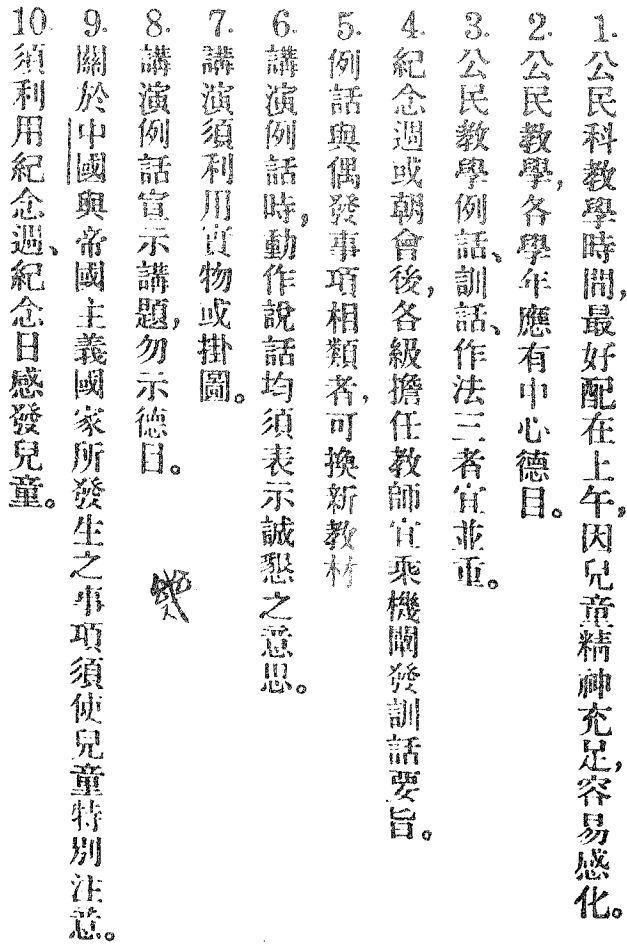 1. 公民科教學時間,最好配在上午,因兒童精神充足,容易感化。
2. 公民教學,各學年應有中心德目。
3. 公民教學例話、訓話、作法三者宜並重。
4. 紀念週或朝會後,各級擔任教師宜乘機闡發訓話要旨。
5. 例話與偶發事項相類者,可換新教材
6. 講演例話時,動作說話均須表示誠懇之意思。
7. 講演須利用實物或掛圖。
8. 講演例話宣示講題,勿示德目。
9. 關於中國與帝國主義國家所發生之事項須使兒童特別注意。
10. 須利用紀念週、紀念日感發兒童。